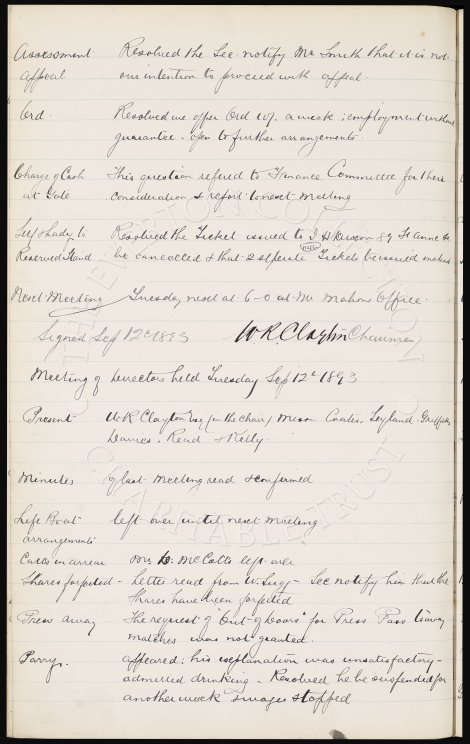 Assessment Resolved the Sec notify Mr Smith that it is not
appeal our intention to proceed with appeal.
Ord. Resolved we offer Ord 10/- a week; employment without
guarantee. open to further arrangements.
Charge of Cash This question refered to Finance Committee for their
at Gate consideration & report to next meeting
Self & Lady to Resolved the Ticket issued to J H 89 St Anne St
Reserved Stand be cancelled & that 2 seperate Tickets be issued instead
Next Meeting Tuesday next at 6-0 at Mr Mahons Office.
Signed Sep 12th 1893 W.R. Clayton Chairman
Meeting of Directors held Tuesday Sep 12th 1893
Present W.R. Clayton Esq (in the chair) Messrs Coates, Leyland Griffiths
Davies, Read & Kelly.
Minutes of last meeting read & confirmed
Life Boat left over until next meeting
arrangements
Calls in arrear Mr McColls left over
Shares forfeited - Letter read from W. Sugg - Sec notify him that the
shares have been forfeited
Press away The request of "Out of Doors" for Press Pass to away
matches was not granted.
Parry. appeared; his explanation was unsatisfactory -
admitted drinking - Resolved he be suspended for
another week & wages stopped
THE EVERTON COLLECTION
CHARITABLE TRUST